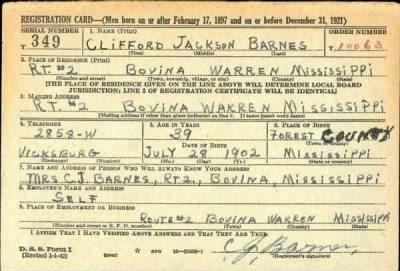 REGISTRATION CARD—(Men born on or after February 17, 1897 and on or before December 31, 1921)
SERIAL NUMBER 1. NAME (Print) ORDER NUMBER
T 349 CLIFFORD JACKSON BARNES T10063
(First) (Middle) (Last)
2. PLACE OF RESIDENCE (Print)
RT. #2 BOVINA WARREN MISSISSIPPI
(Number and street) (Town, township, village, or city) (County) (State)
[THE PLACE OF RESIDENCE GIVEN ON THE LINE ABOVE WILL DETERMINE LOCAL BOARD
JURISDICTION; LINE 2 OF REGISTRATION CERTIFICATE WILL BE IDENTICAL]
3. MAILING ADDRESS
RT. #2 BOVINA WARREN MISSISSIPPI
[Mailing address if other than place indicated on line 2. If same insert word same]
4. TELEPHONE 5. AGE IN YEARS 6. PLACE OF BIRTH
2858-W 39 FOREST COUNTY
DATE OF BIRTH (Town or county)
VICKSBURG JULY 28 1902 MISSISSIPPI
(Exchange) (Number) (Mo.) (Day) (Yr.) (State or country)
7. NAME AND ADDRESS OF PERSON WHO WILL ALWAYS KNOW YOUR ADDRESS
MRS C. J. BARNES, RT 2, BOVINA, MISSISSIPPI
8. EMPLOYER'S NAME AND ADDRESS
SELF
9. PLACE OF EMPLOYMENT OR BUSINESS
ROUTE #2 BOVINA WARREN MISSISSIPPI
(Number and street or R. F. D. number) (Town) (County) (State)
I AFFIRM THAT I HAVE VERIFIED ABOVE ANSWERS AND THAT THEY ARE TRUE.
D. S. S. Form 1 C J Barnes
(Revised 1-1-42) (over) (Registrant's signature)